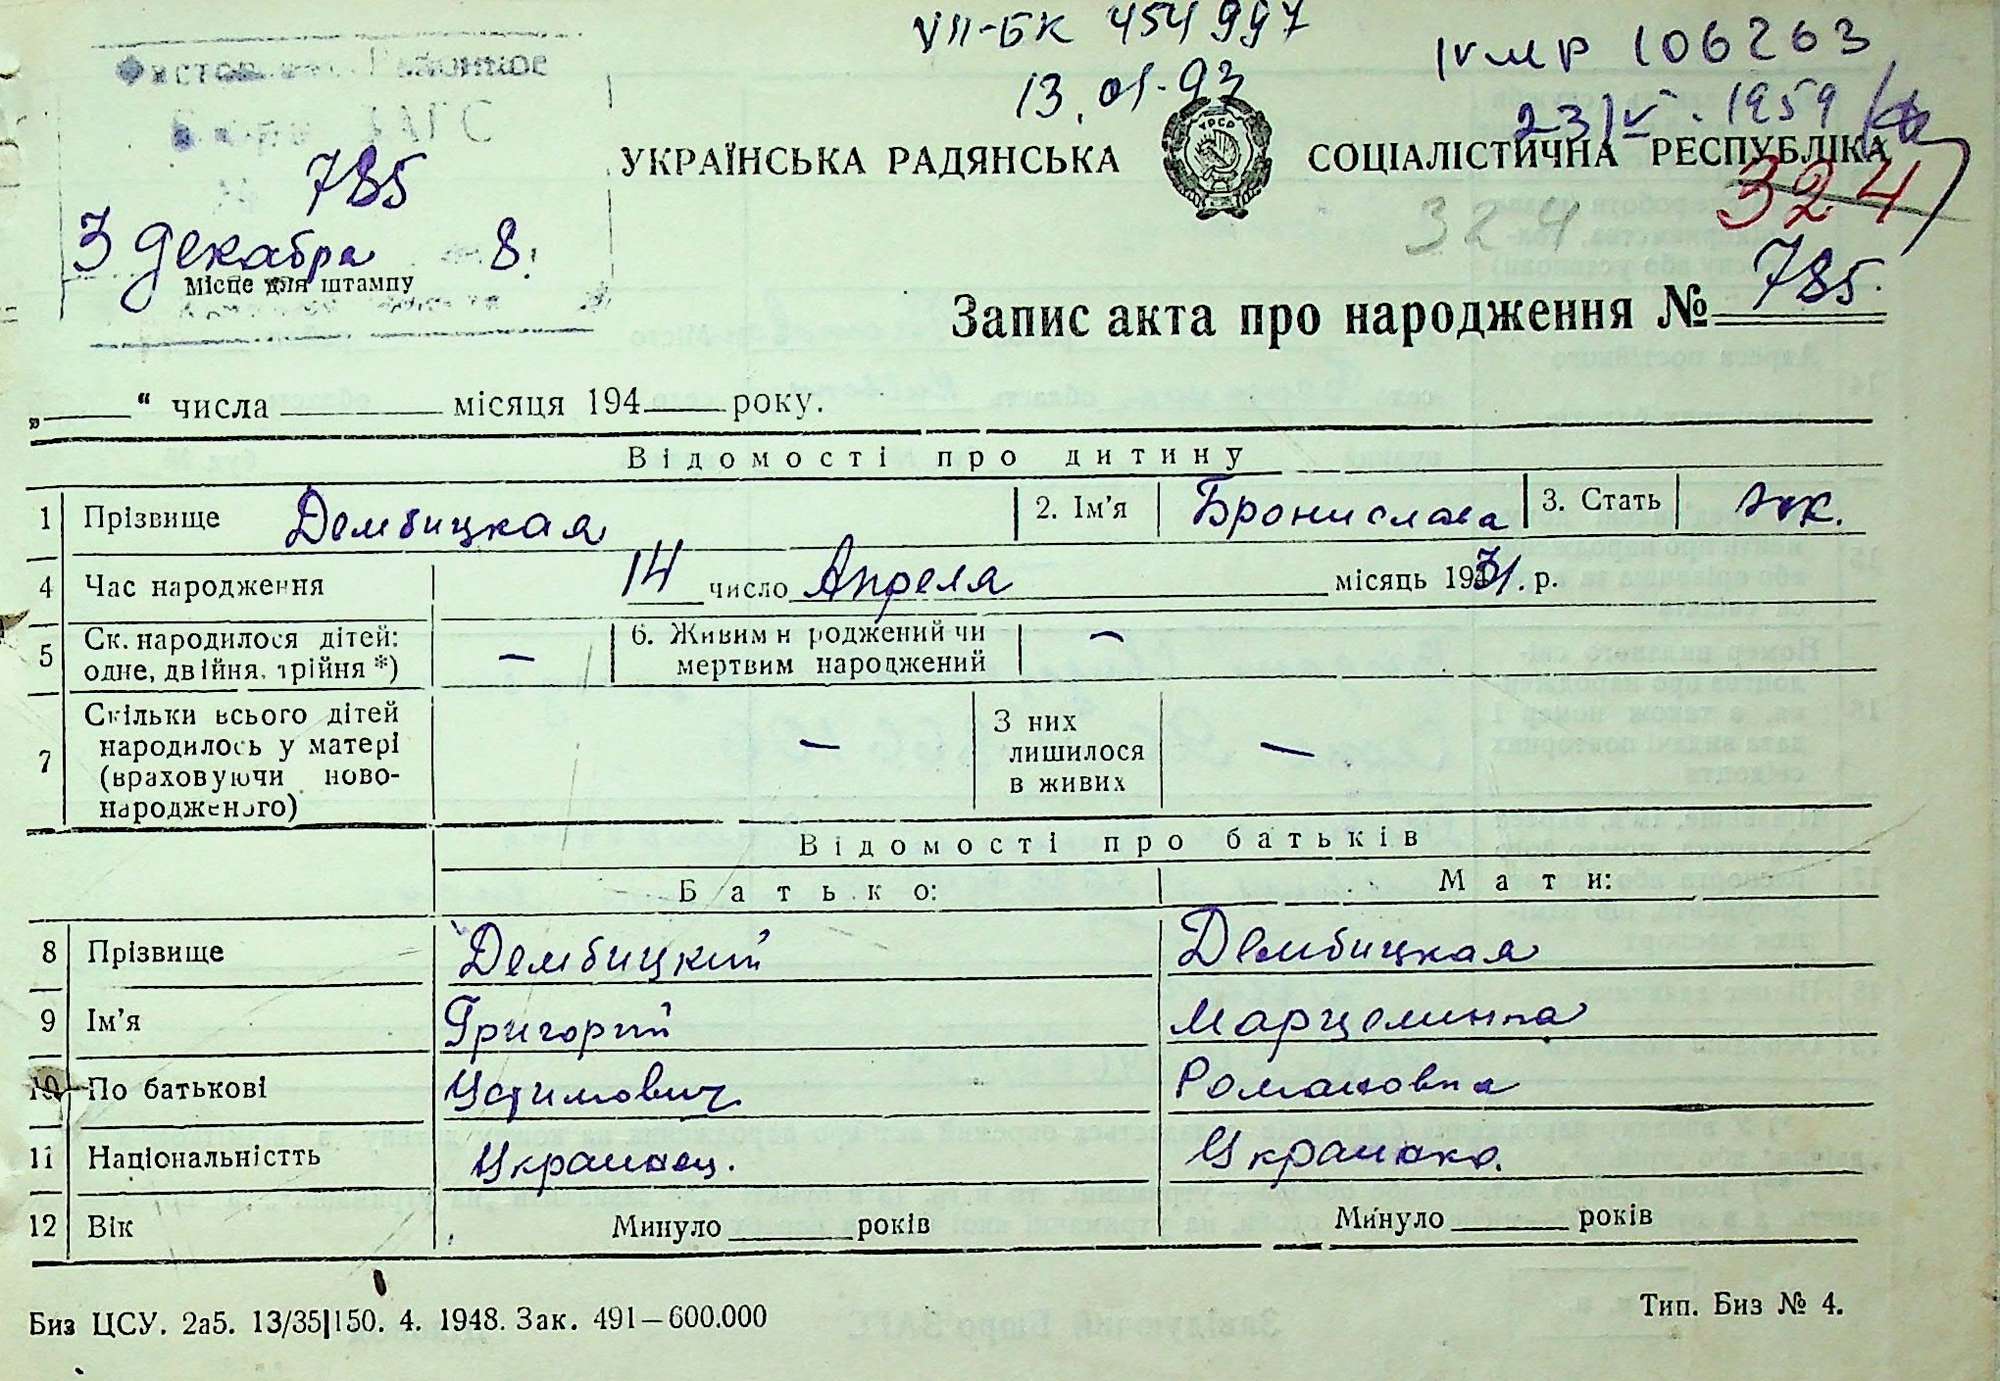 VII-БК 454997
13.01.93
IV МР 106263
23/V.1959
Районное
ЗАГС
785
3 декабря 8.
Місце для штампу
УКРАЇНСЬКА РАДЯНСЬКА СОЦІАЛІСТИЧНА РЕСПУБЛІКА
324 324
Запис акта про народження № 785.
„ “ числа місяця 194 року.
Відомості про дитину
1 Прізвище Дембицкая 2. Ім’я Бронислава 3. Стать жк.
4 Час народження 14 число Апреля місяць 1931. р.
5 Ск. народилося дітей: одне, двійня, трійня *) — 6. Живим н роджений чи мертвим народжений —
7 Скільки всього дітей народилось у матері (враховуючи ново-народженого) — З них лишилося в живих —
Відомості про батьків
Батько: Мати:
8 Прізвище Дембицкий Дембицкая
9 Ім’я Григорий Марцелинна
10 По батькові Устимович Романовна
11 Національністть Украинец. Украинка.
12 Вік Минуло років Минуло років
Биз ЦСУ. 2а5. 13/35|150. 4. 1948. Зак. 491—600.000 Тип. Биз № 4.